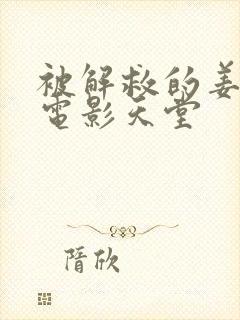 被解救的姜
电影天堂
隋欣